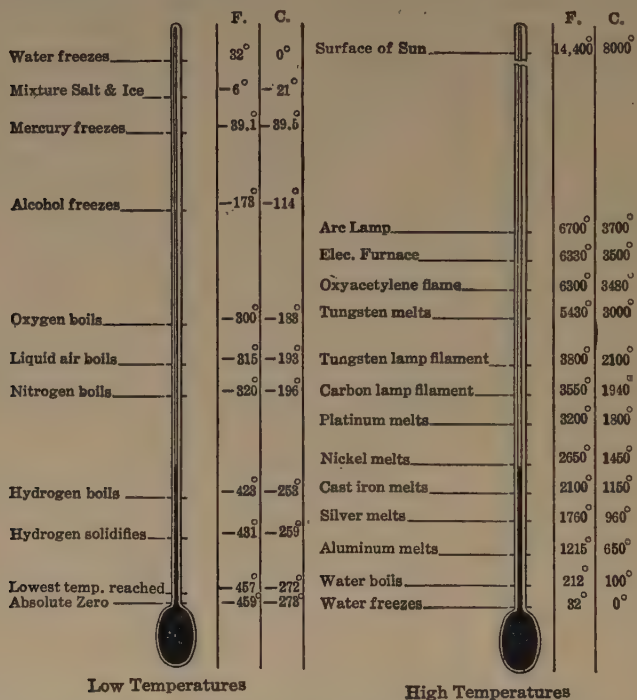 F. C.
Water freezes 32° 0°
Mixture Salt & Ice -6° -21°
Mercury freezes -39.1° -39.5°
Alcohol freezes -173° -114°
Oxygen boils -300° -183°
Liquid air boils -315° -193°
Nitrogen boils -320° -196°
Hydrogen boils -423° -253°
Hydrogen solidifies -431° -259°
Lowest temp. reached -457° -272°
Absolute Zero -459° -273°
Low Temperatures
F. C.
Surface of Sun 14,400° 8000°
Arc Lamp 6700° 3700°
Elec. Furnace 6330° 3500°
Oxyacetylene flame 6300° 3480°
Tungsten melts 5430° 3000°
Tungsten lamp filament 3800° 2100°
Carbon lamp filament 3550° 1940°
Platinum melts 3200° 1800°
Nickel melts 2650° 1450°
Cast iron melts 2100° 1150°
Silver melts 1760° 960°
Aluminum melts 1215° 650°
Water boils 212° 100°
Water freezes 32° 0°
High Temperatures